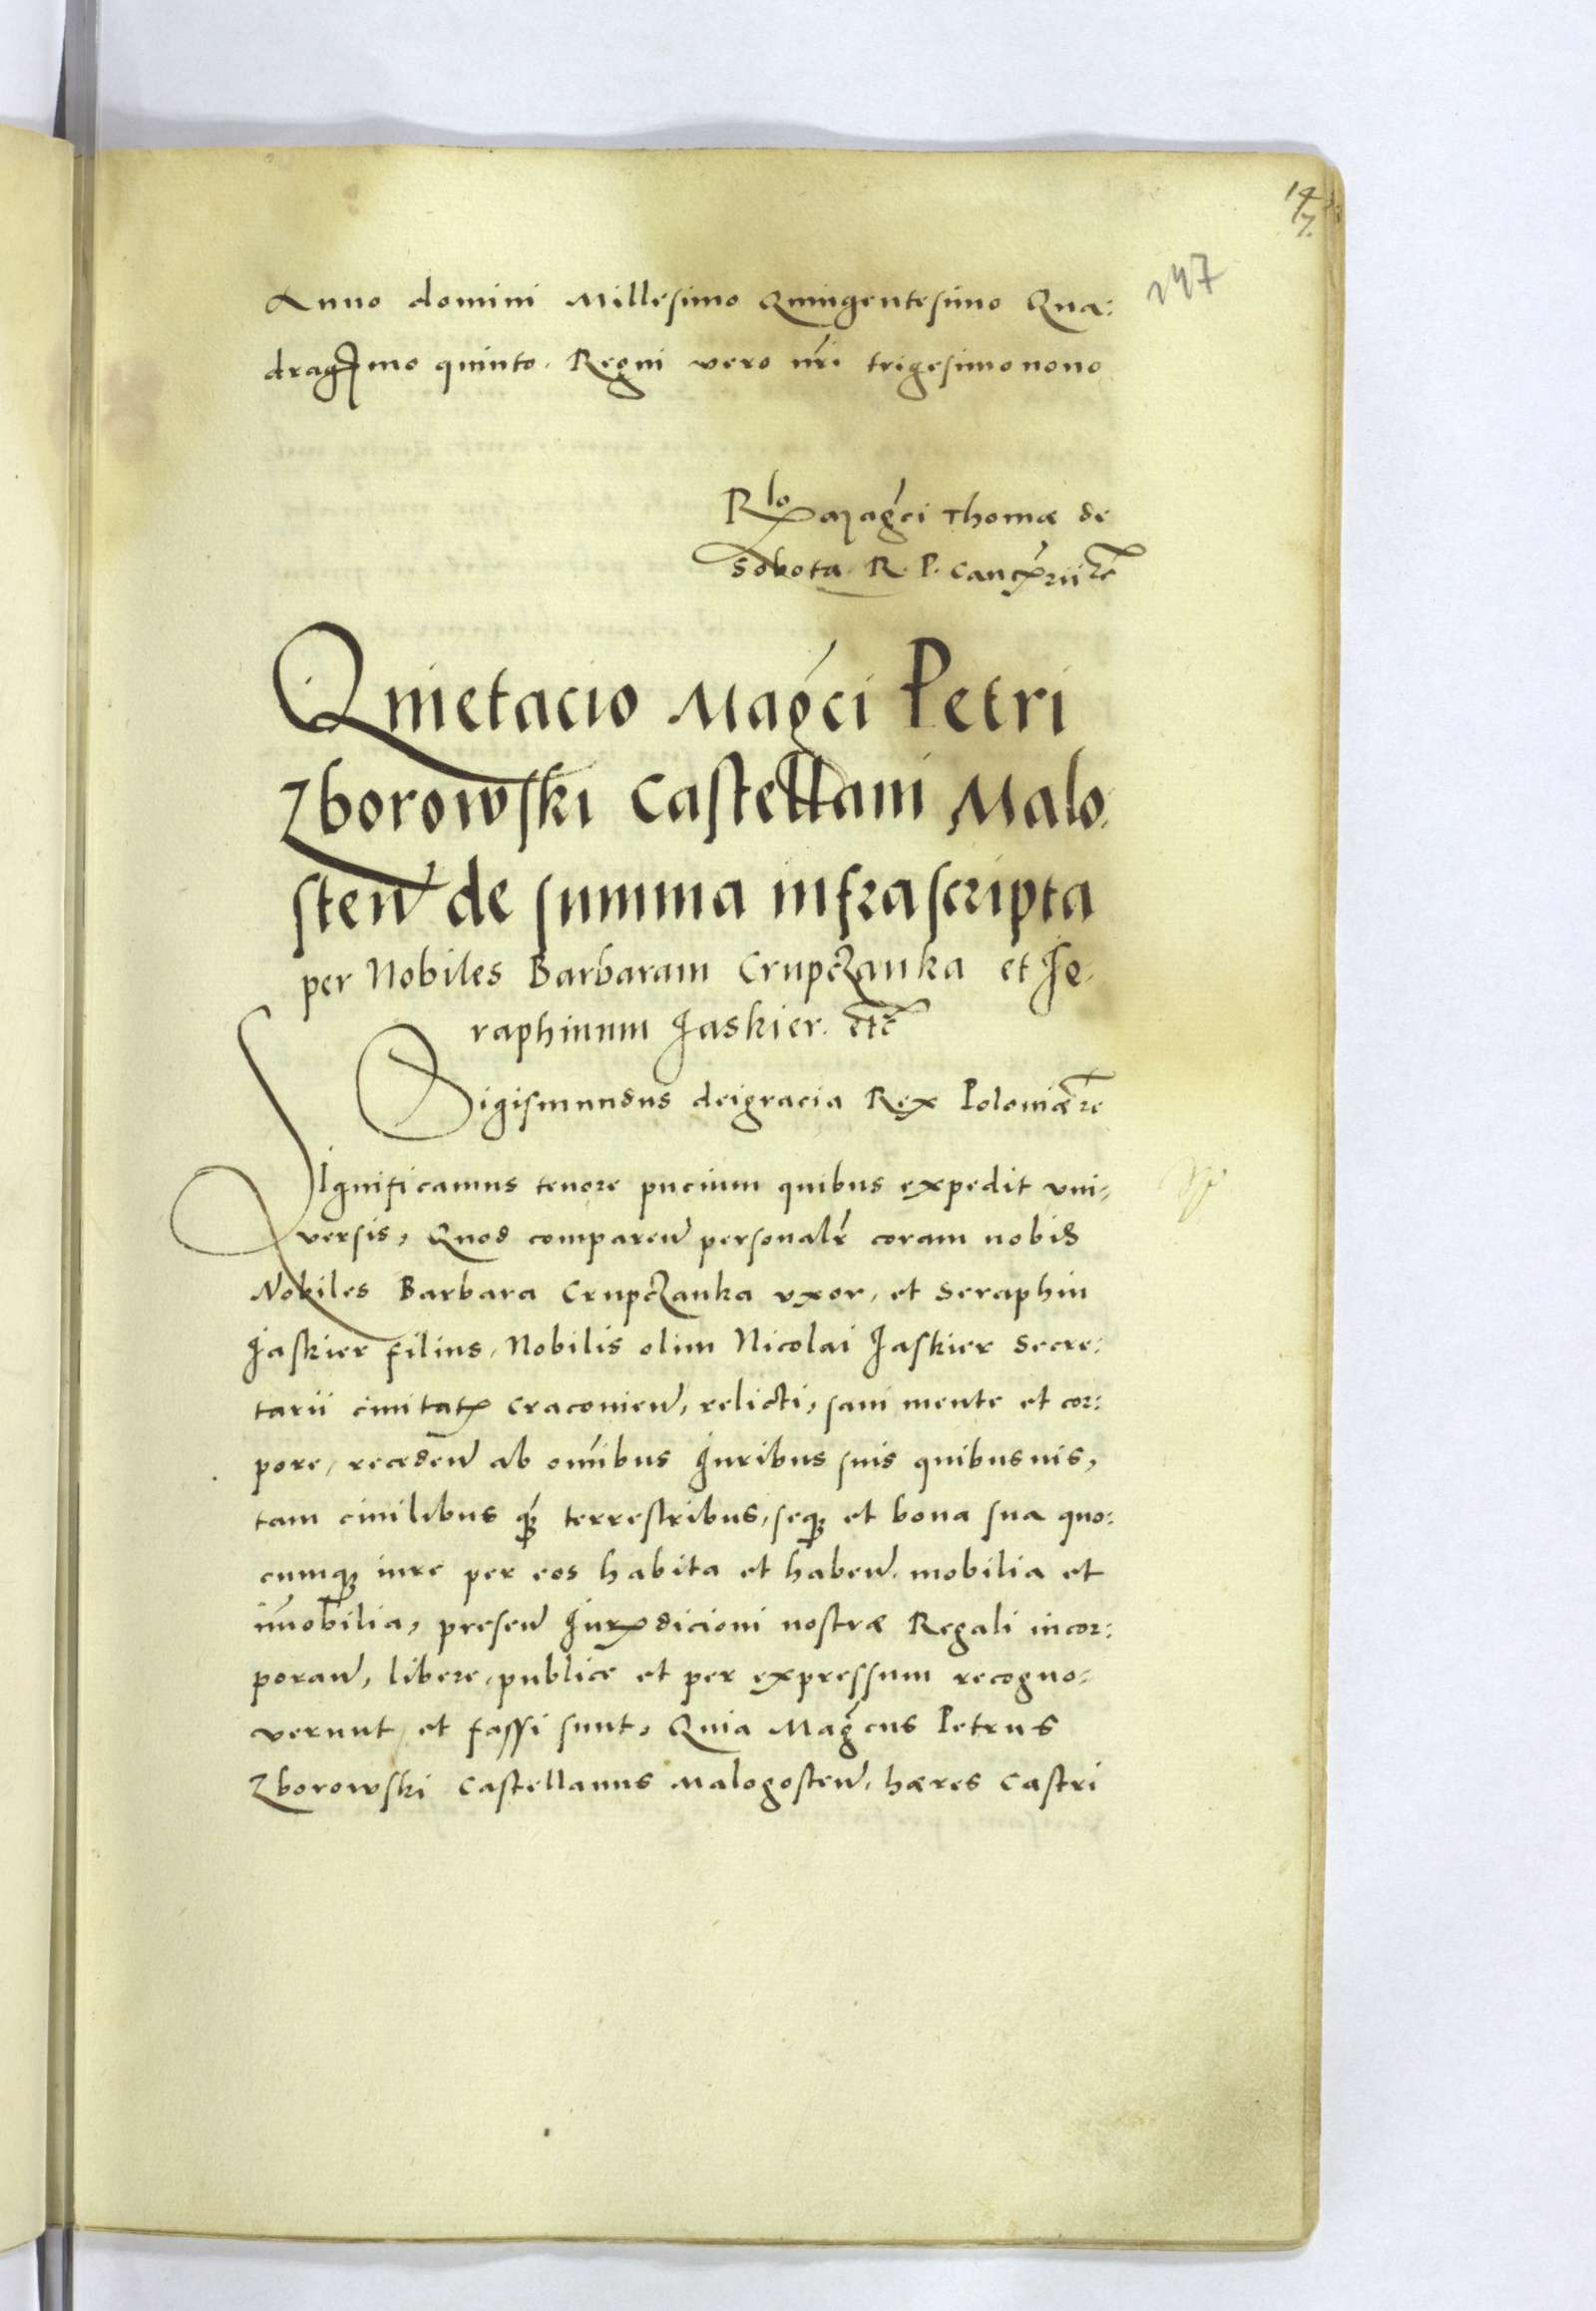 147
147
Anno domini Millesimo Quingentesimo Qua:
dragesimo quinto. Regni vero nri trigesimonono
Rlo Magci Thomæ de
Sobota. R. P. Cancrii etc
Quietacio Magci Petri
Zborowski Castellani Malo:
sten de summa infrascripta
per Nobiles Barbaram Crupczanka et Se:
raphinum Jaskier. etc
Sigismundus dei gracia Rex Poloniæ etc
Significamus tenore pncium quibus expedit vni:
versis, Quod comparen personalr coram nobis
Nobiles Barbara Crupczanka vxor, et Seraphin
Jaskier filius, Nobilis olim Nicolai Jaskier Secre:
tarii ciuitatis Cracouien, relicti, sani mente et cor:
pore, receden ab omibus Juribus suis quibusuis,
tam ciuilibus q terrestribus, seq et bona sua quo:
cumq iure per eos habita et haben. mobilia et
imobilia, presen Jurisdicioni nostræ Regali incor:
poran, libere, publice et per expressum recogno:
verunt, et fassi sunt, Quia Magcus Petrus
Zborowski Castellanus Malogosten, hæres Castri